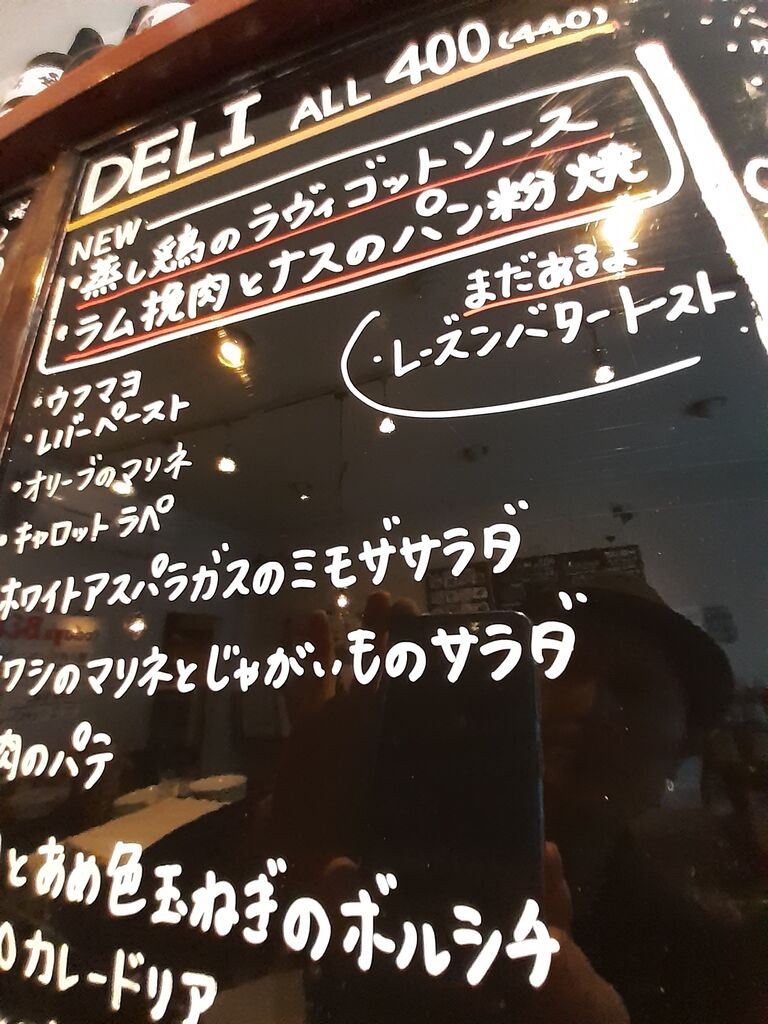 DELI ALL 400 (440)
NEW
・蒸し鶏のラヴィゴットソース
・ラム挽肉とナスのパン粉焼
まだあるよ
・レーズンバタートースト
・ウフマヨ
・レバーペースト
・オリーブのマリネ
・キャロットラペ
ホワイトアスパラガスのミモザサラダ
ワシのマリネとじゃがいものサラダ
肉のパテ
とあめ色玉ねぎのボルシチ
カレードリア